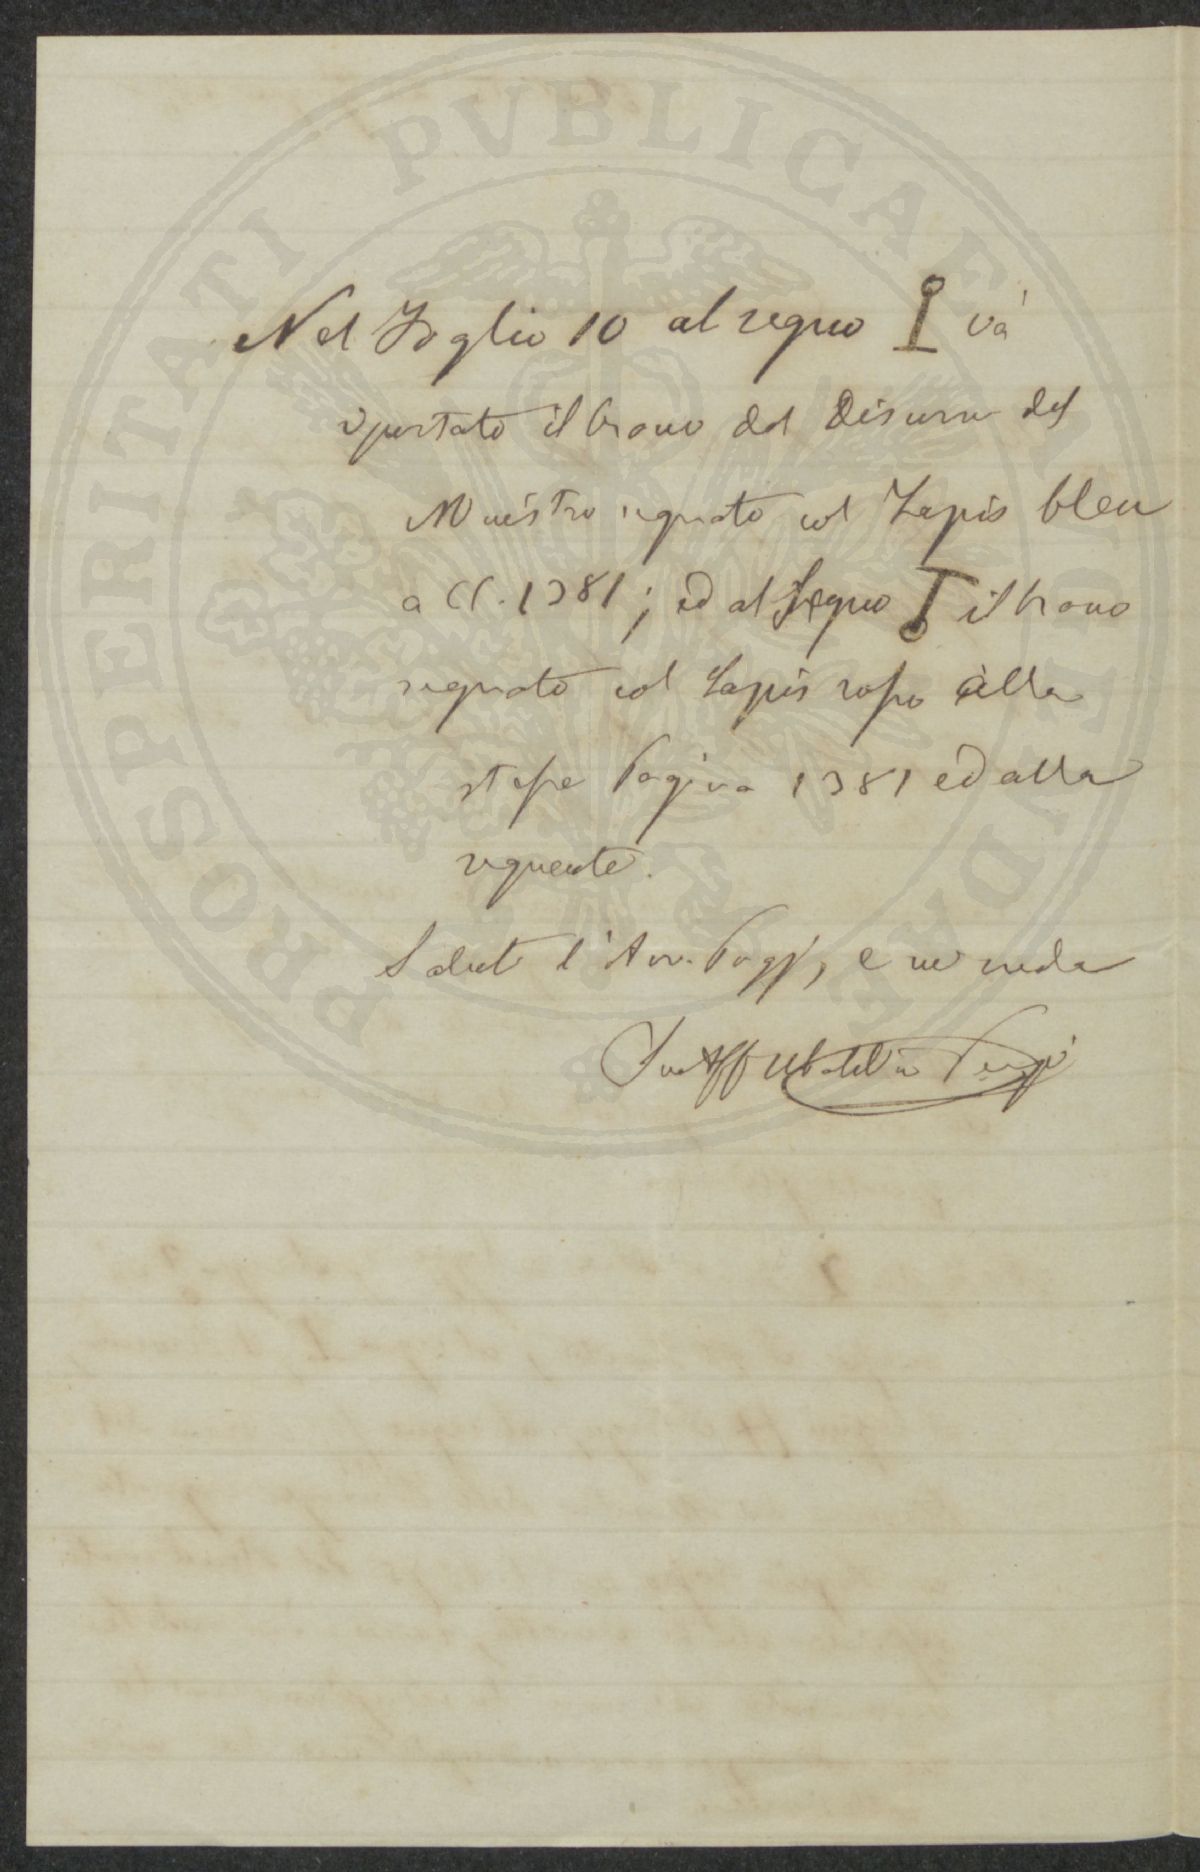 PROSPERITATI PVBLICAE AVGENDAE
Nel Foglio 10 al segno và
riportato il brano del Discorso del
Ministro segnato col Lapis bleu
a 1381; ed al Segno il brano
segnato col Lapis rosso alla
stessa Pagina 1381 ed alla
seguente.
Saluti l'Avv. Poggi, e mi creda
Suo Aff Ubaldino Peruzzi